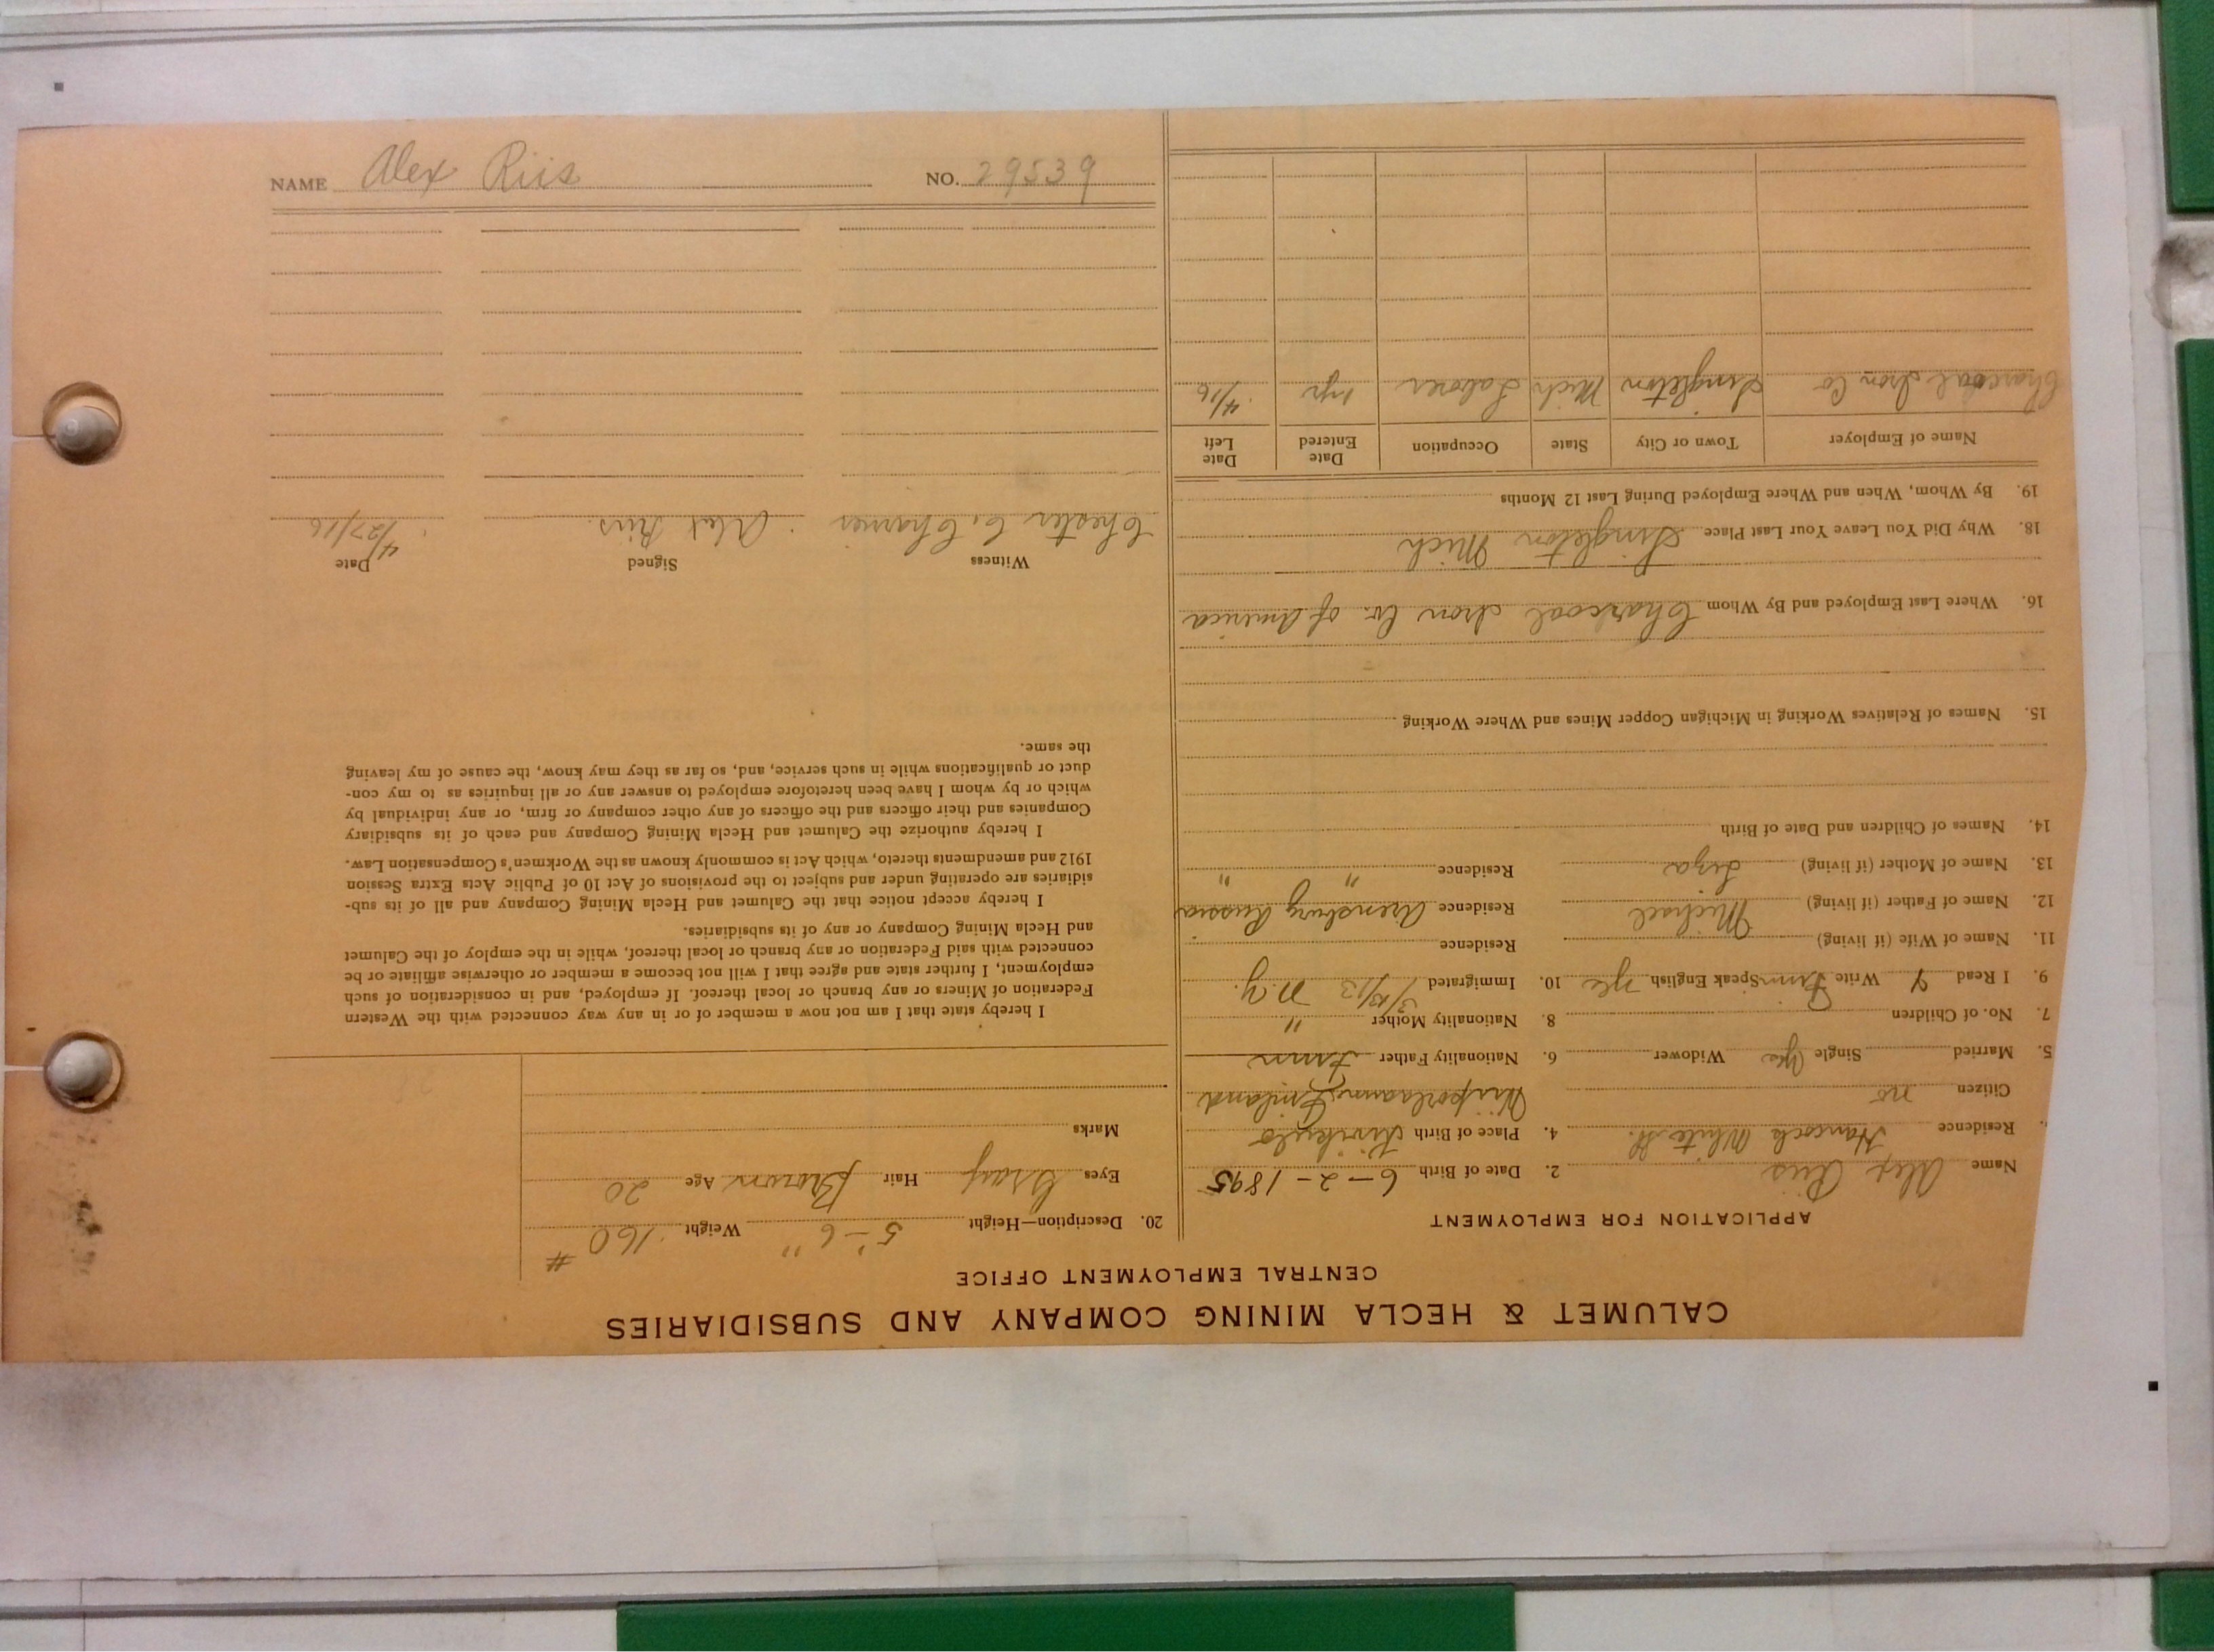 CALUMET & HECLA MINING COMPANY AND SUBSIDIARIES
CENTRAL EMPLOYMENT OFFICE
APPLICATION FOR EMPLOYMENT
Name Alex Riis 2. Date of Birth 6-2-1895
Residence Hancock White St. 4. Place of Birth
Citizen no Finland
5. Married Single Yes Widower 6. Nationality Father Finn
7. No. of Children 8. Nationality Mother "
9. I Read Y Write Finn Speak English Yes 10. Immigrated 3/13/13 N.Y.
11. Name of Wife (if living) Residence
12. Name of Father (if living) Michael Residence Arensburg Russia
13. Name of Mother (if living) Liza Residence " "
14. Names of Children and Date of Birth
15. Names of Relatives Working in Michigan Copper Mines and Where Working
16. Where Last Employed and By Whom Charcoal Iron Co. of America
18. Why Did You Leave Your Last Place Singleton Mich
19. By Whom, When and Where Employed During Last 12 Months
Name of Employer Town or City State Occupation Date Entered Date Left
Charcoal Iron Co Singleton Mich Laborer 1 yr 4/16
20. Description—Height 5'-6" Weight 160 #
Eyes Gray Hair Brown Age 20
Marks
I hereby state that I am not now a member of or in any way connected with the Western
Federation of Miners or any branch or local thereof. If employed, and in consideration of such
employment, I further state and agree that I will not become a member or otherwise affiliate or be
connected with said Federation or any branch or local thereof, while in the employ of the Calumet
and Hecla Mining Company or any of its subsidiaries.
I hereby accept notice that the Calumet and Hecla Mining Company and all of its sub-
sidiaries are operating under and subject to the provisions of Act 10 of Public Acts Extra Session
1912 and amendments thereto, which Act is commonly known as the Workmen's Compensation Law.
I hereby authorize the Calumet and Hecla Mining Company and each of its subsidiary
Companies and their officers and the officers of any other company or firm, or any individual by
which or by whom I have been heretofore employed to answer any or all inquiries as to my con-
duct or qualifications while in such service, and, so far as they may know, the cause of my leaving
the same.
Witness Signed Date
Chester C. Alex Riis. 4/27/16
NAME Alex Riis NO. 29539